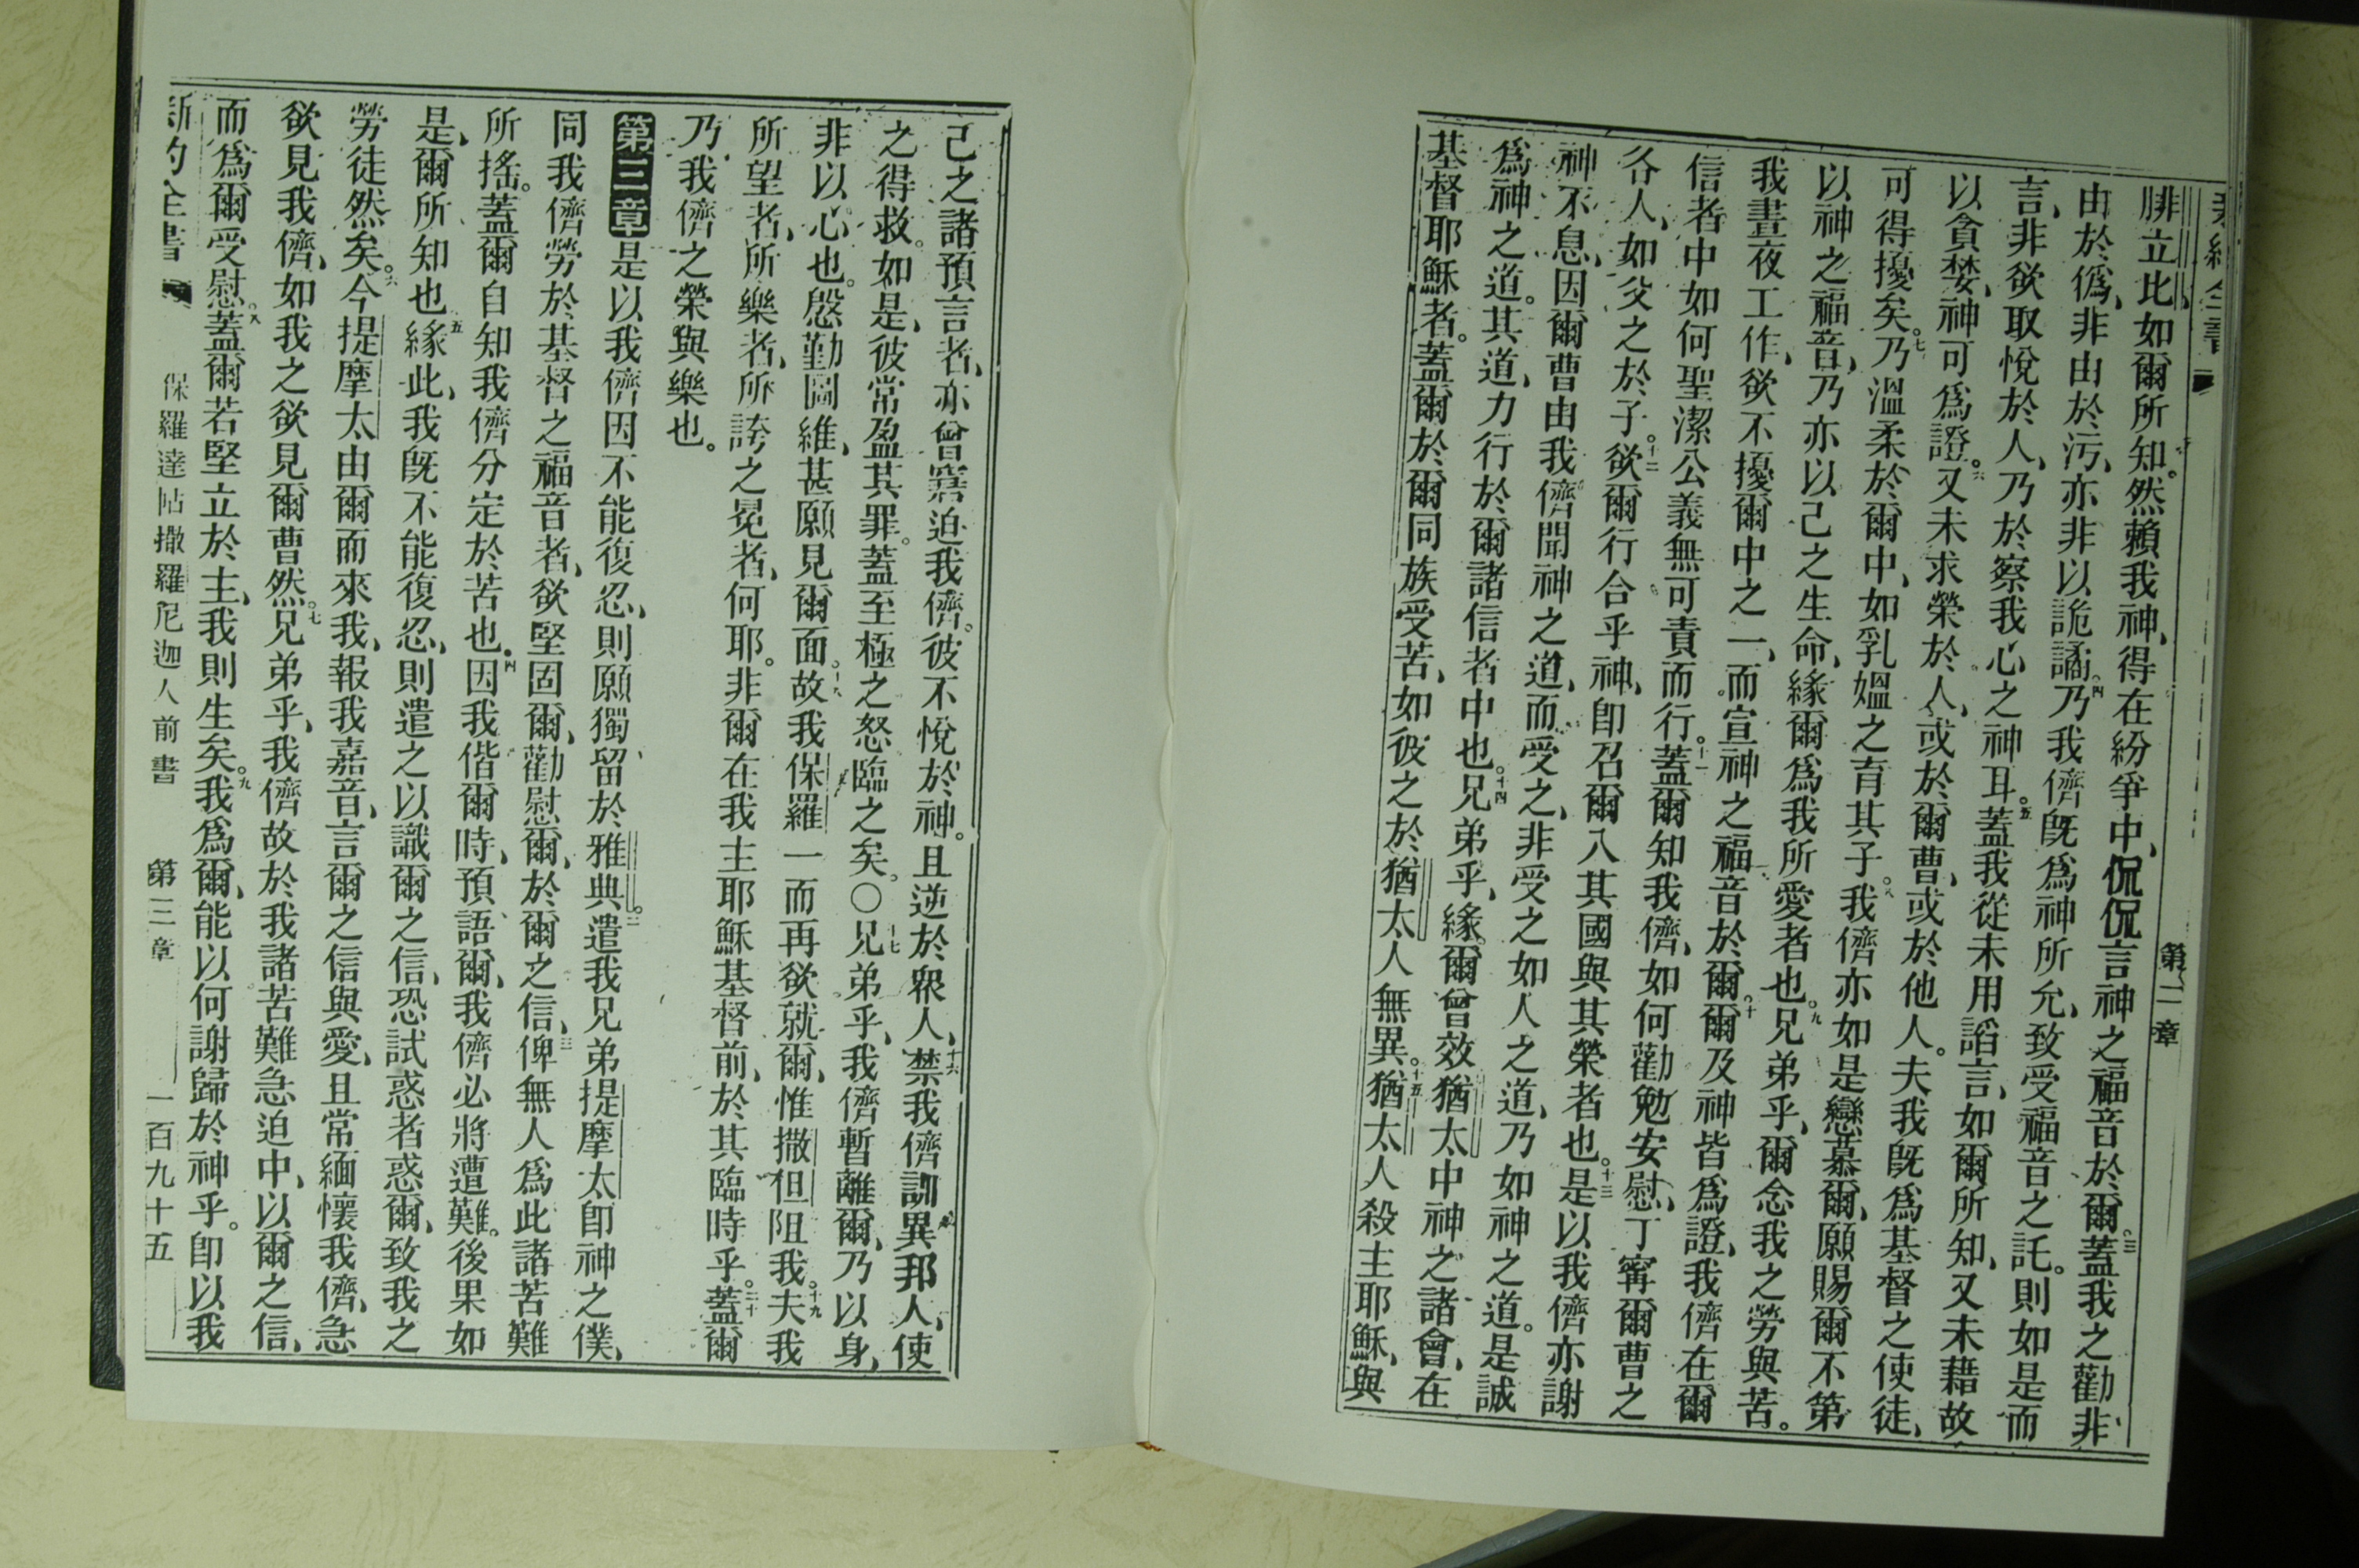 新約全書 第二章
腓立比、如爾所知。然賴我神、得在紛爭中、侃侃言神之福音於爾。三蓋我之勸、非
由於僞、非由於污、亦非以詭譎。四乃我儕既爲神所允、致受福音之託。則如是而
言、非欲取悅於人、乃於察我心之神耳。五蓋我從未用謟言、如爾所知、又未藉故
以貪婪、神可爲證。六又未求榮於人、或於爾曹、或於他人。夫我既爲基督之使徒、
可得擾矣。七乃溫柔於爾中、如乳媼之育其子。八我儕亦如是戀慕爾、願賜爾不第
以神之福音、乃亦以己之生命、緣爾爲我所愛者也。九兄弟乎、爾念我之勞與苦。
我晝夜工作、欲不擾爾中之一、而宣神之福音於爾。十爾及神皆爲證、我儕在爾
信者中如何聖潔公義無可責而行。十一蓋爾知我儕、如何勸勉安慰、丁寧爾曹之
各人、如父之於子。十二欲爾行合乎神、卽召爾入其國與其榮者也。十三是以我儕亦謝
神不息、因爾曹由我儕聞神之道、而受之、非受之如人之道、乃如神之道。是誠
爲神之道。其道、力行於爾諸信者中也。十四兄弟乎、緣爾曾效猶太中神之諸會、在
基督耶穌者。蓋爾於爾同族受苦、如彼之於猶太人無異。十五猶太人殺主耶穌、與
己之諸預言者、亦曾窘迫我儕。彼不悅於神。且逆於衆人、十六禁我儕訓異邦人、使
之得救。如是、彼常盈其罪。蓋至極之怒臨之矣。〇十七兄弟乎、我儕暫離爾、乃以身、
非以心也。慇勤圖維、甚願見爾面。十八故我保羅一而再欲就爾、惟撒但阻我。十九夫我
所望者、所樂者、所誇之冕者、何耶。非爾在我主耶穌基督前、於其臨時乎。二十蓋爾
乃我儕之榮與樂也。
第三章是以我儕因不能復忍、則願獨留於雅典。二遣我兄弟提摩太卽神之僕、
同我儕勞於基督之福音者、欲堅固爾、勸慰爾、於爾之信、三俾無人爲此諸苦難
所搖。蓋爾自知我儕分定於苦也。四因我偕爾時、預語爾、我儕必將遭難。後果如
是、爾所知也。五緣此、我既不能復忍、則遣之以識爾之信、恐試惑者惑爾、致我之
勞徒然矣。六今提摩太由爾而來我、報我嘉音、言爾之信與愛、且常緬懷我儕、急
欲見我儕、如我之欲見爾曹然。七兄弟乎、我儕故於我諸苦難急迫中、以爾之信、
而爲爾受慰。八蓋爾若堅立於主、我則生矣。九我爲爾、能以何謝歸於神乎。卽以我
新約全書 保羅達帖撒羅尼迦人前書 第三章 一百九十五